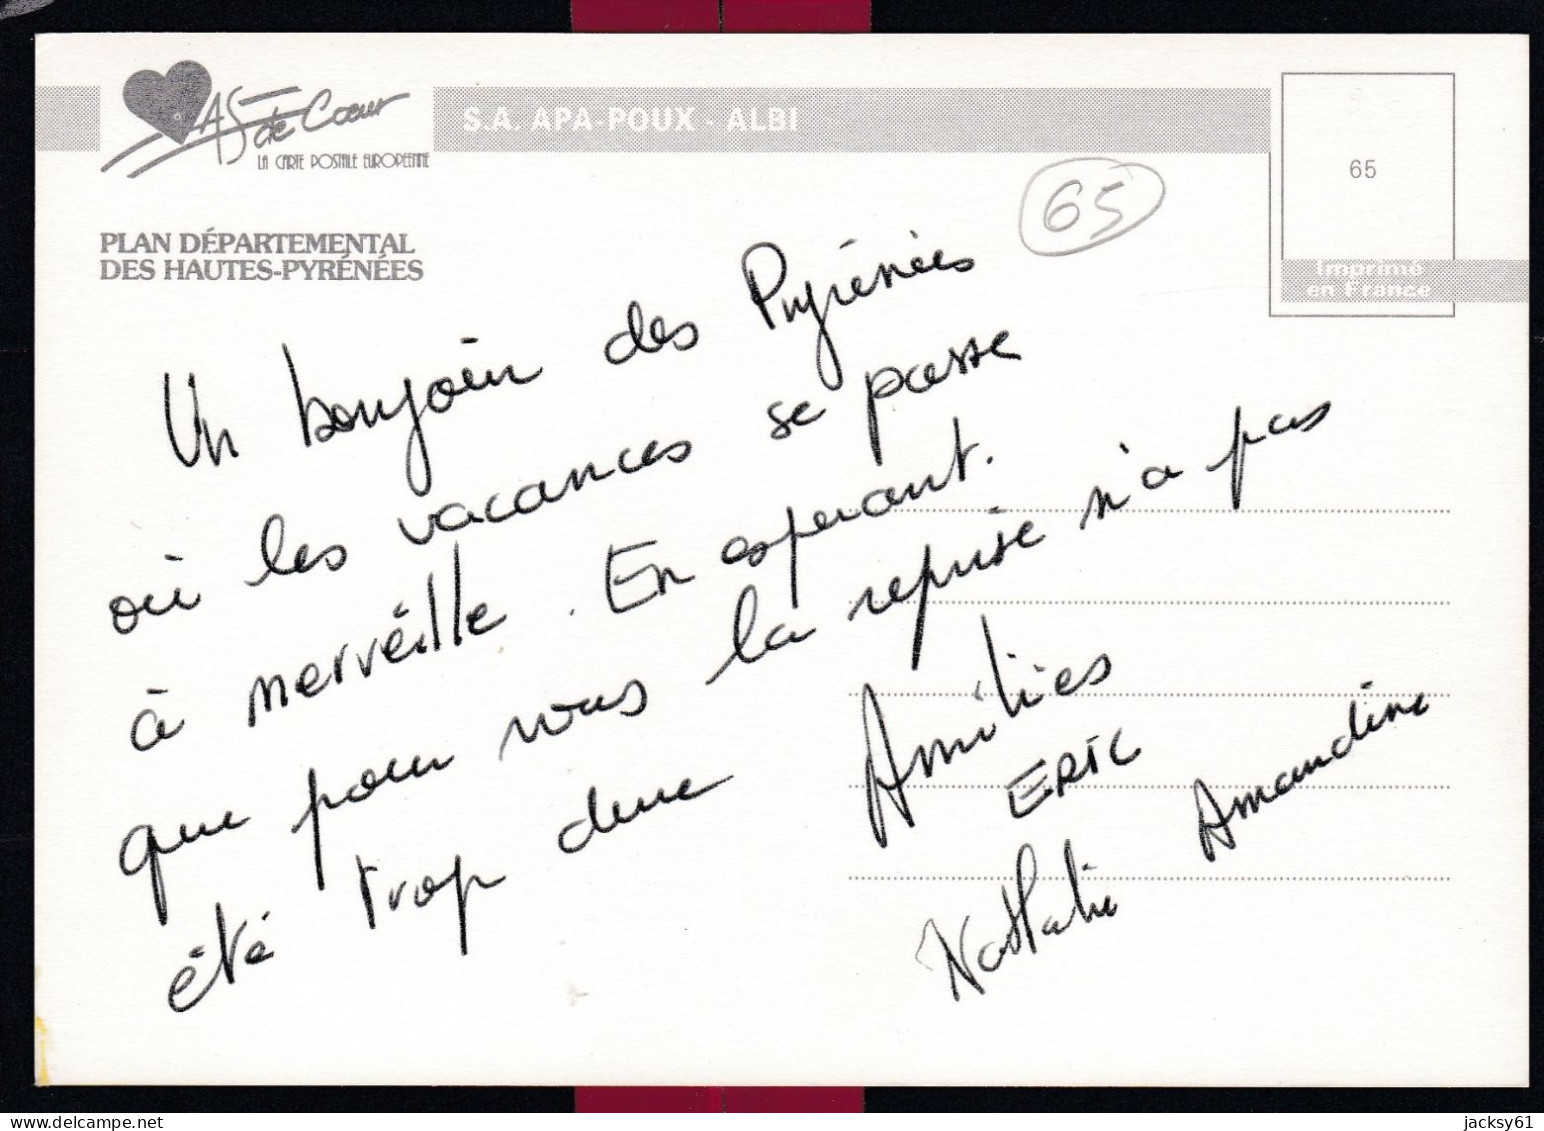 AS de Cœur
LA CARTE POSTALE EUROPEENNE
S.A. APA-POUX - ALBI
65
65
Imprimé
en France
PLAN DÉPARTEMENTAL
DES HAUTES-PYRÉNÉES
Un bonjour des Pyrénées
où les vacances se passe
à merveille. En esperant.
que pour vous la reprise n'a pas
été trop dure
Amitiés
ERIC
Nathalie Amandine
jacksy61